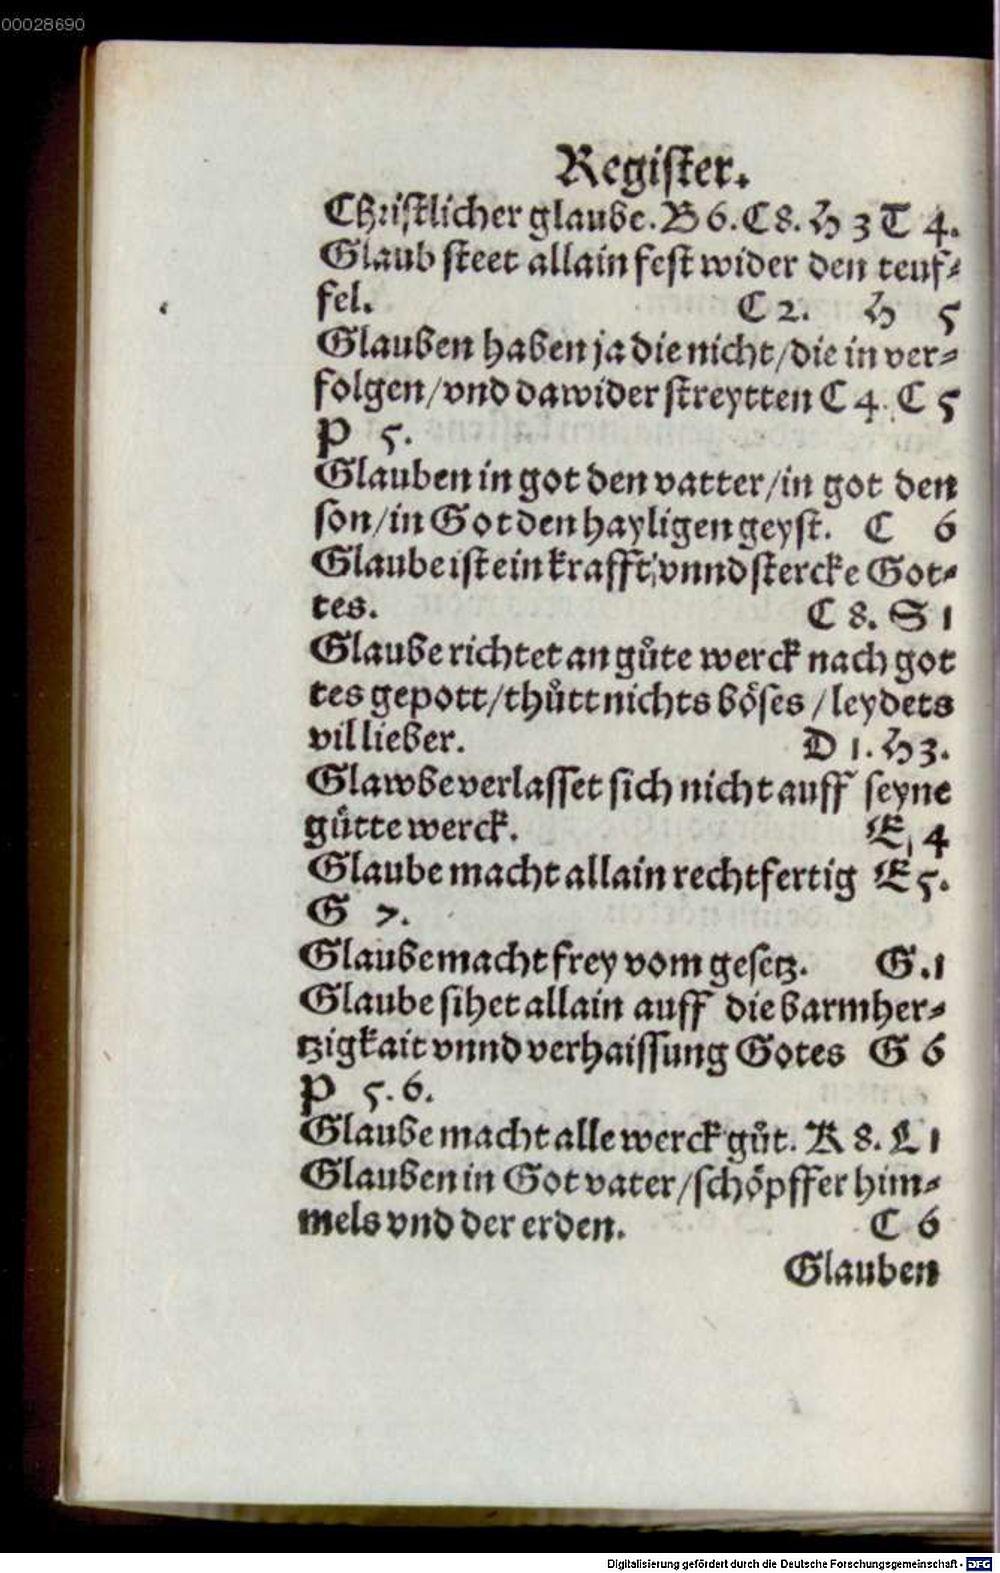 00028690
Regiſter.
Chriſtlicher glaube. B 6. C 8. H 3 T 4.
Glaub ſteet allain feſt wider den teuf⸗
fel. C 2. H 5
Glauben haben ja die nicht/die in ver⸗
folgen/vnd dawider ſtreytten C 4. C 5
P 5.
Glauben in got den vatter/in got den
ſon/in Got den hayligen geyſt. C 6
Glaube iſt ein krafft/vnnd ſtercke Got⸗
tes. C 8. S 1
Glaube richtet an gůte werck nach got
tes gepott/thůtt nichts böſes/leydets
vil lieber. D 1. H 3.
Glawbe verlaſſet ſich nicht auff ſeyne
gůtte werck. E 4
Glaube macht allain rechtfertig E 5.
G 7.
Glaube macht frey vom geſetz. G.1
Glaube ſihet allain auff die barmher⸗
tzigkait vnnd verhaiſſung Gotes G 6
P 5.6.
Glaube macht alle werck gůt. K 8. L 1
Glauben in Got vater/ſchöpffer him⸗
mels vnd der erden. C 6
Glauben
Digitalisierung gefördert durch die Deutsche Forschungsgemeinschaft - DFG